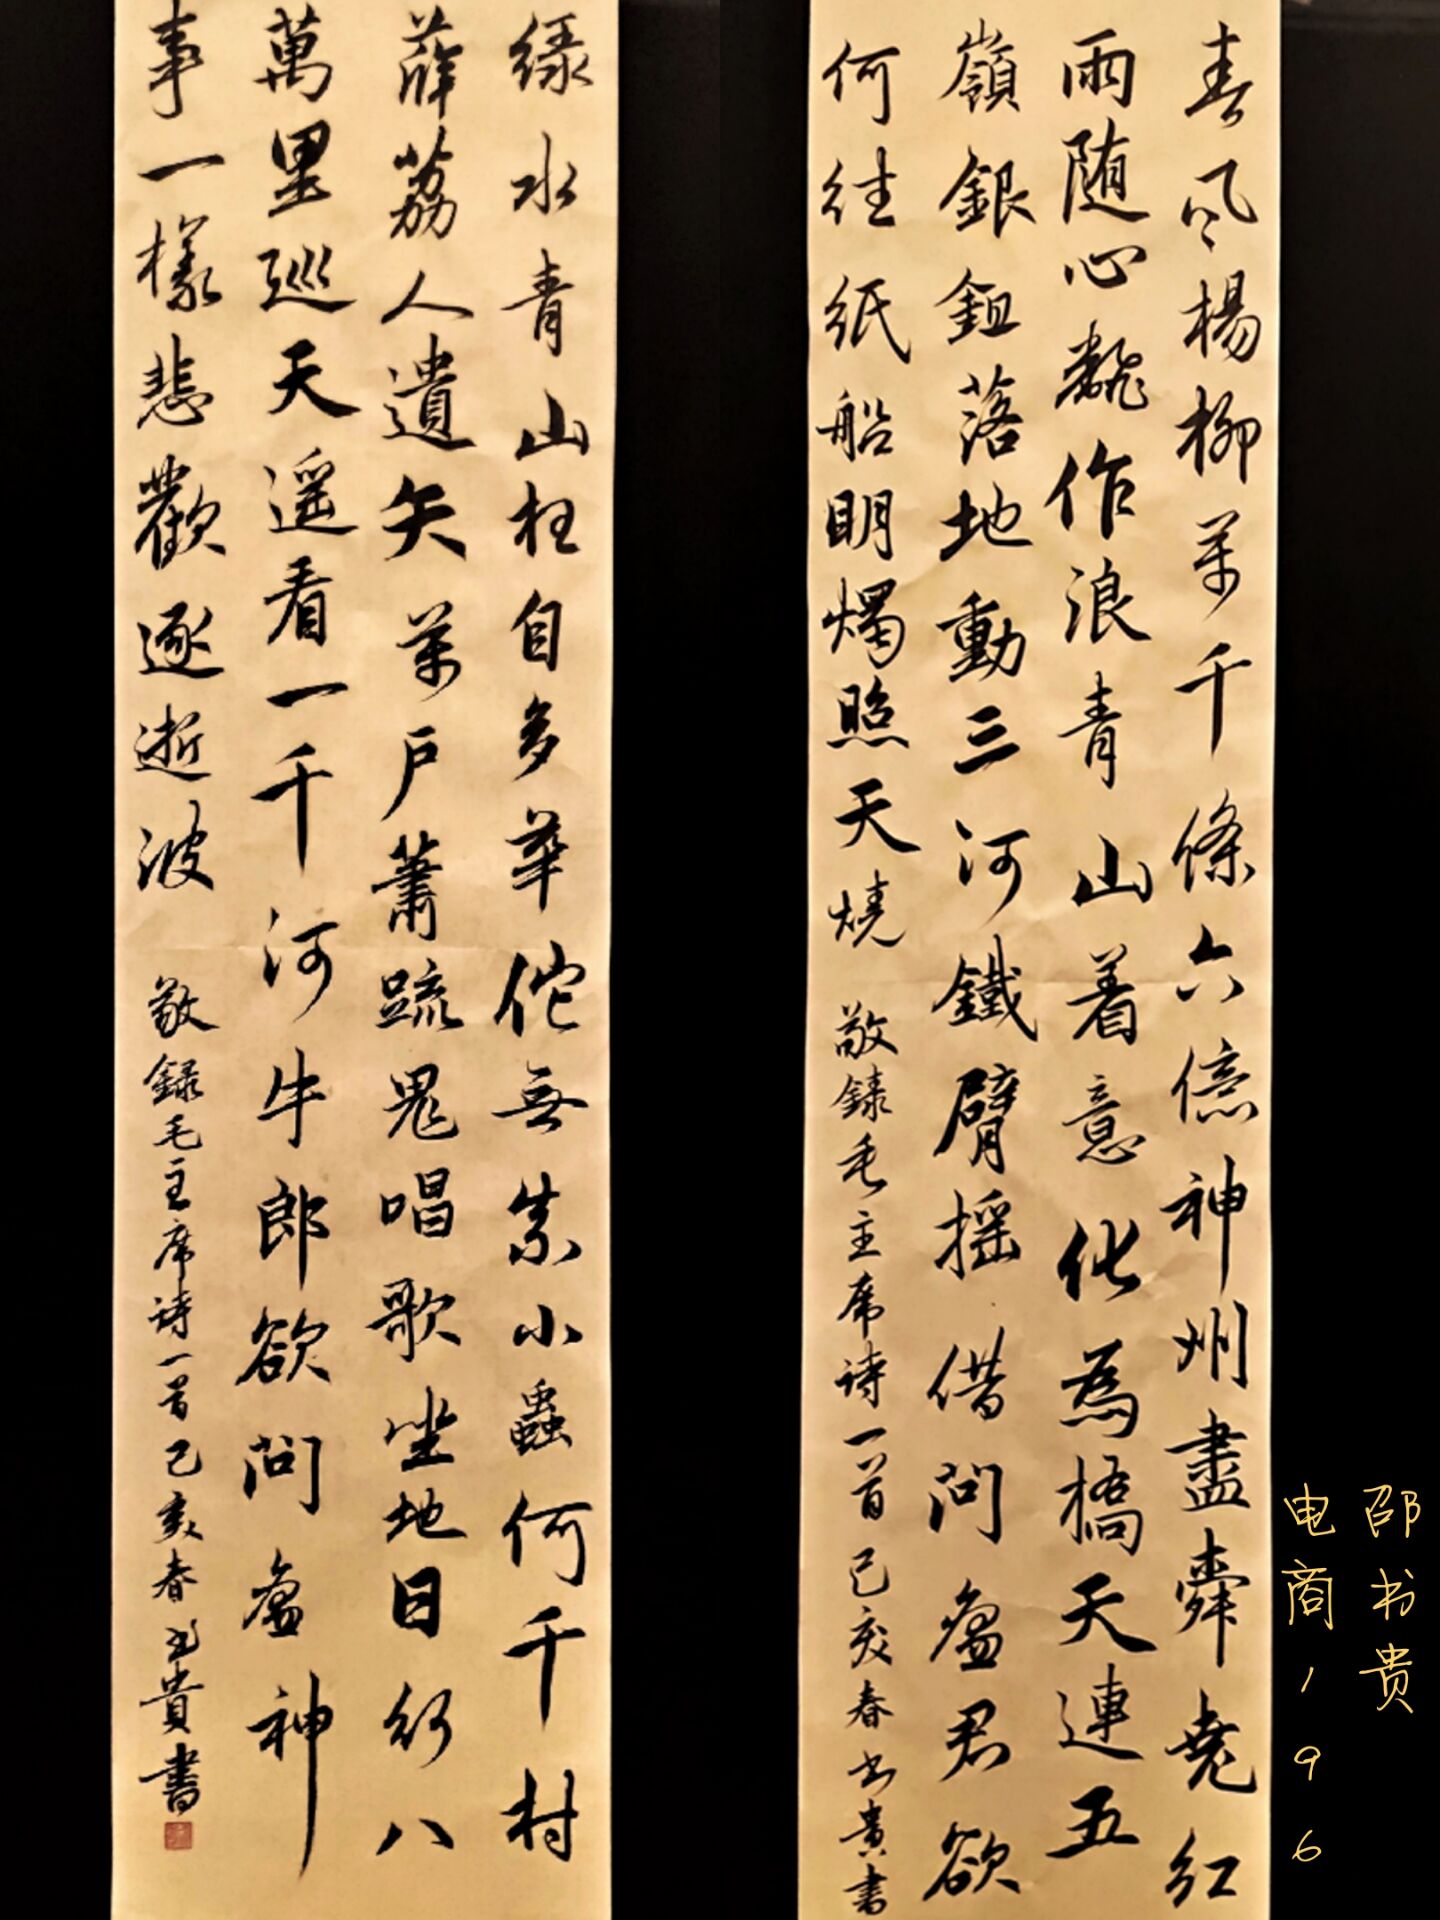 綠水青山枉自多華佗無奈小蟲何千村
薜荔人遺矢萬户蕭疏鬼唱歌坐地日行八
萬里巡天遥看一千河牛郎欲問瘟神
事一樣悲歡逐逝波
敬録毛主席詩一首己亥春书貴書
春风楊柳萬千條六億神州盡舜堯红
雨随心翻作浪青山着意化為橋天連五
嶺銀鉏落地動三河鐵臂摇借問瘟君欲
何往紙船明燭照天燒
敬録毛主席詩一首己亥春书貴書
邵书贵
电商196